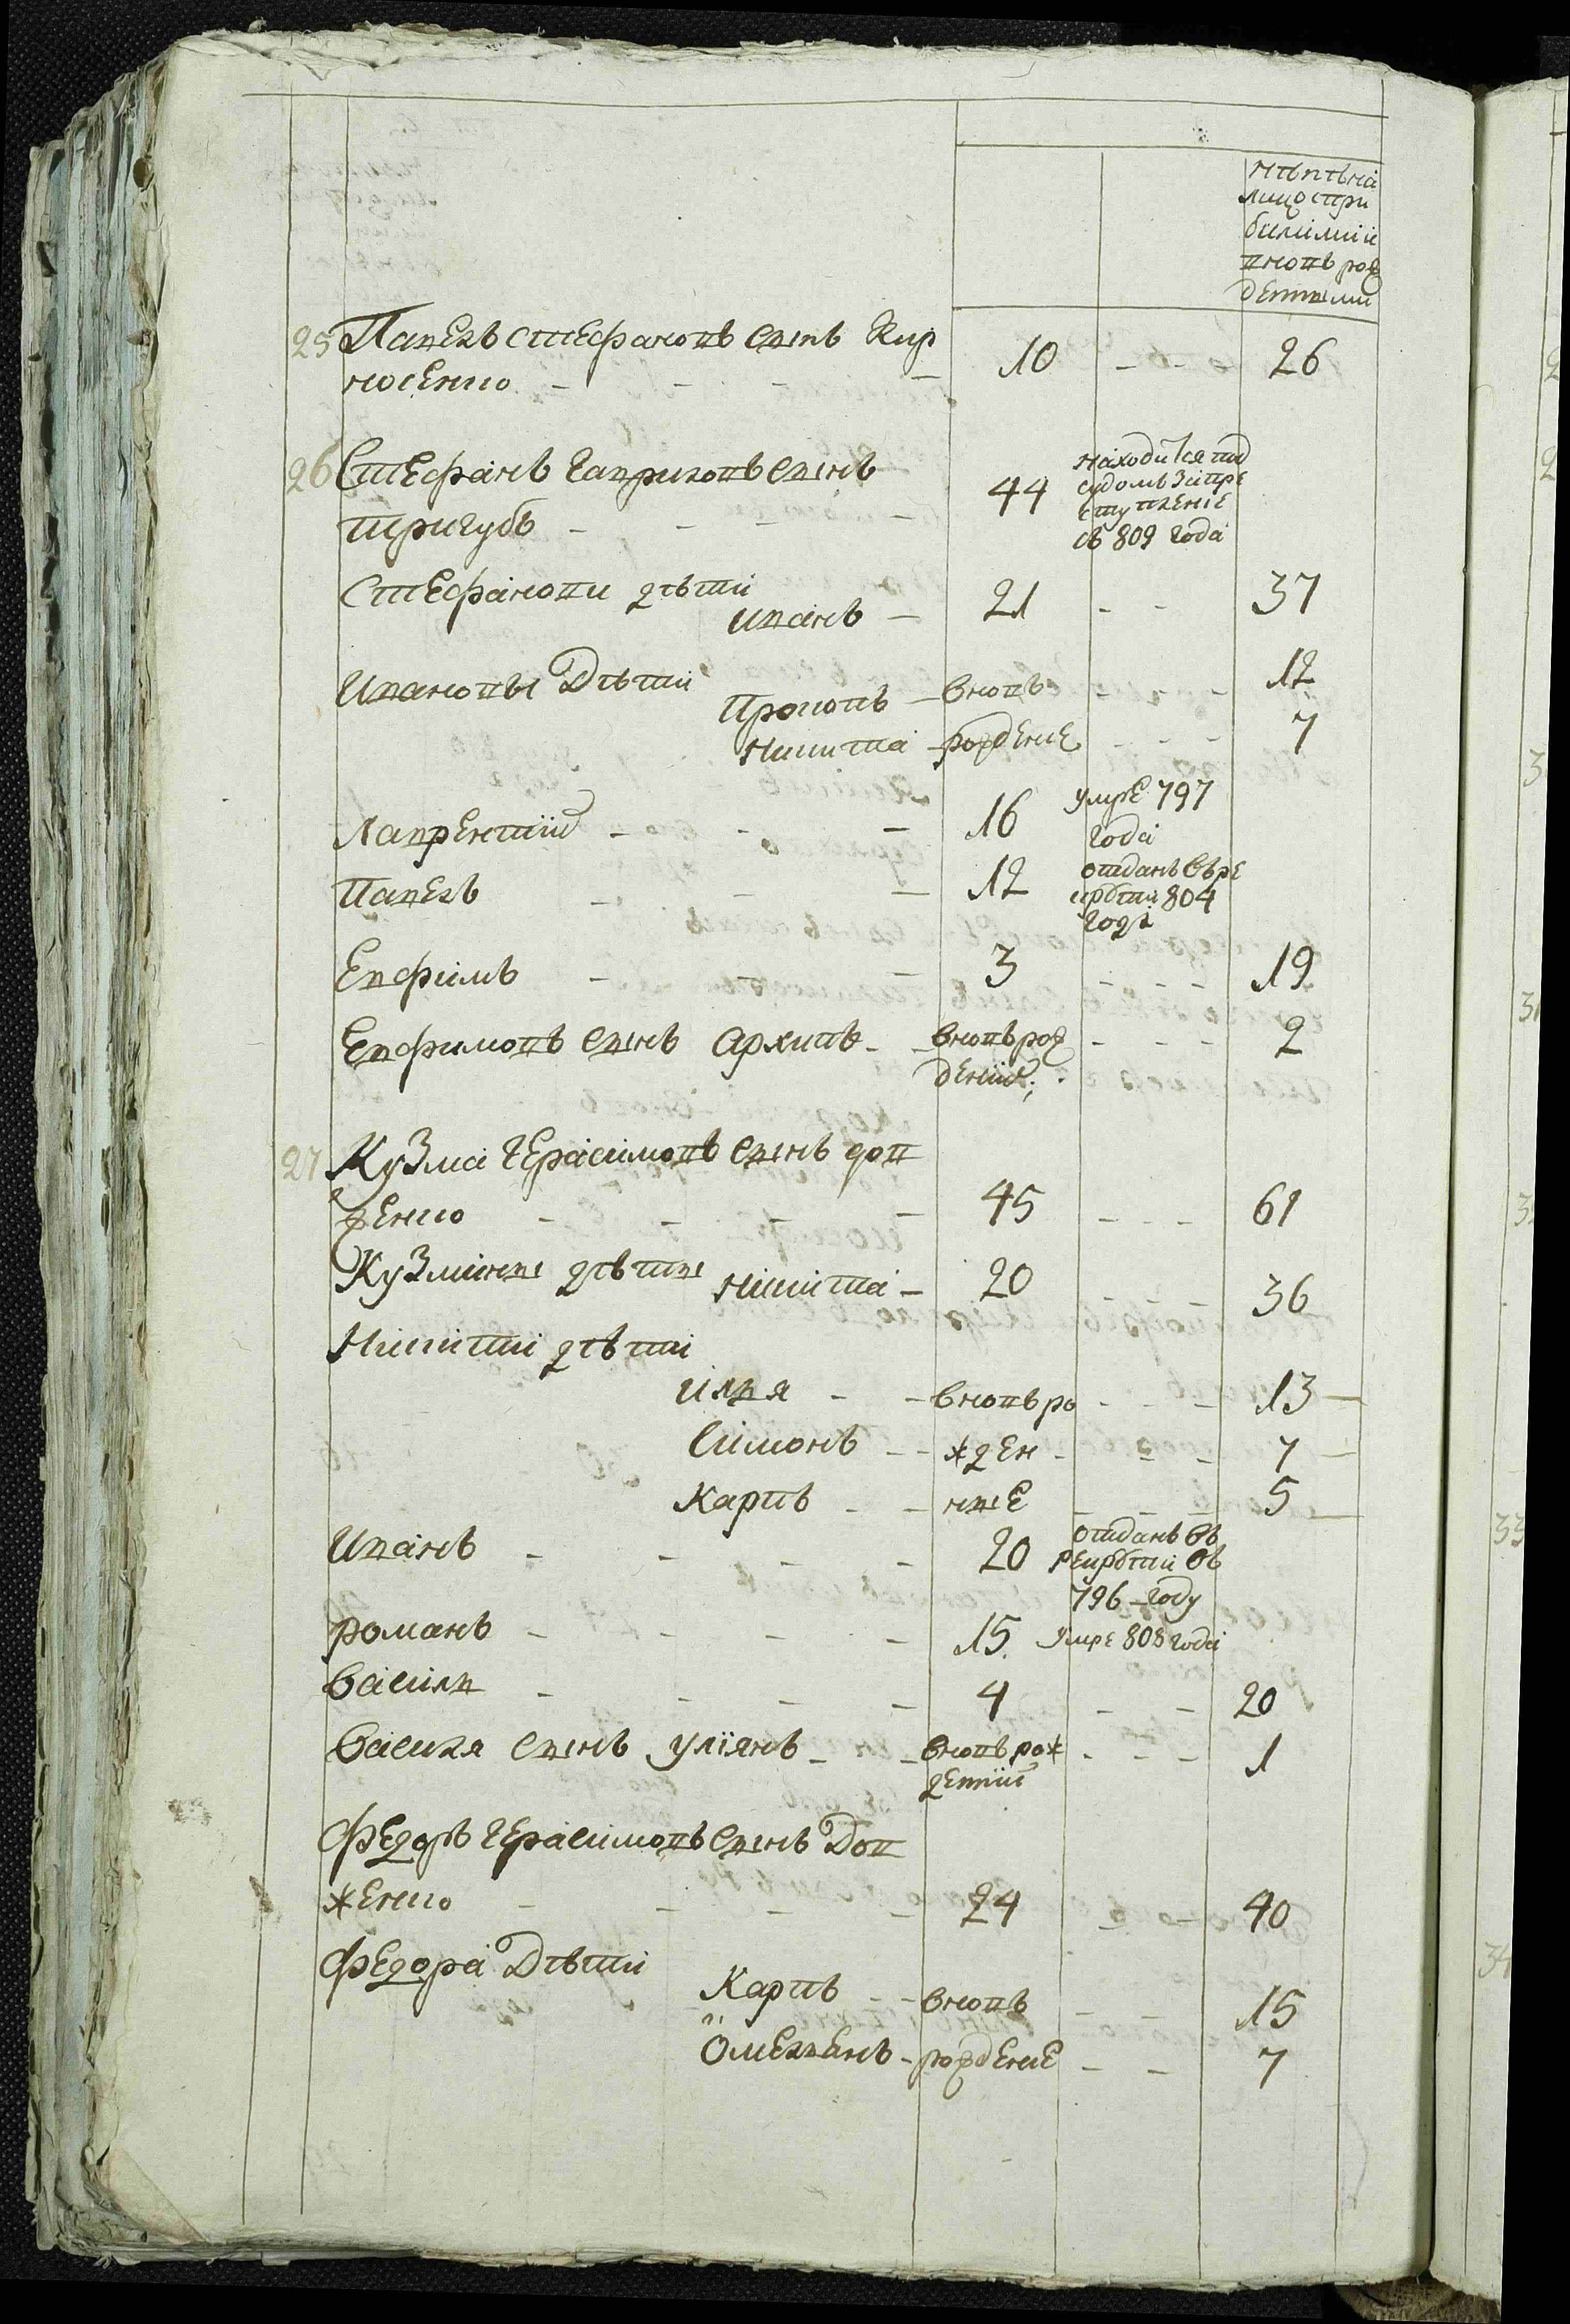 ныьна
лицо спри
билими
вновь рож
денними
25 Павелъ Стефановъ сынъ Кир
носенко - - - - 10 - - - 26
26 Стефанъ Гавриловъ сынъ
тригубъ - - - - 44
находится под
судомъ за пре
ступление
съ 809 года
Стефанови дѣти
Иванъ - 21 - - 37
Ивановы Дѣти
Прокопъ - вновь - - - 12
Никита - рожденіе - - - 7
Лаврентий - - - 16 умре 797
года
Павелъ - - - 12 отданъ въ ре
крути 804
года
Евфимъ - - - 3 - - - 19
Евфимовъ сынъ Архипъ - - вновь рож - - - 2
дений
27 Кузма Герасимовъ сынъ дов
женко - - - - 45 - - - 61
Кузмины дѣты Никита - 20 - - - 36
Никити дѣти
Илья - - вновь ро - - - 13
Симонъ - - жден - - - 7
Карпъ - - ные - - - 5
Иванъ - - - - 20 отданъ въ
рекрути въ
796 году
романъ - - - - 15 умре 808 года
Василь - - - - 4 - - 20
Василя сынъ Улїянъ - - вновь рож - - - 1
дений
Федоръ Герасимовъ сынъ Дов
женко - - - - 24 - - 40
Федора Дѣти
Карпъ - - вновь - - 15
Омельянъ - рождение - - 7